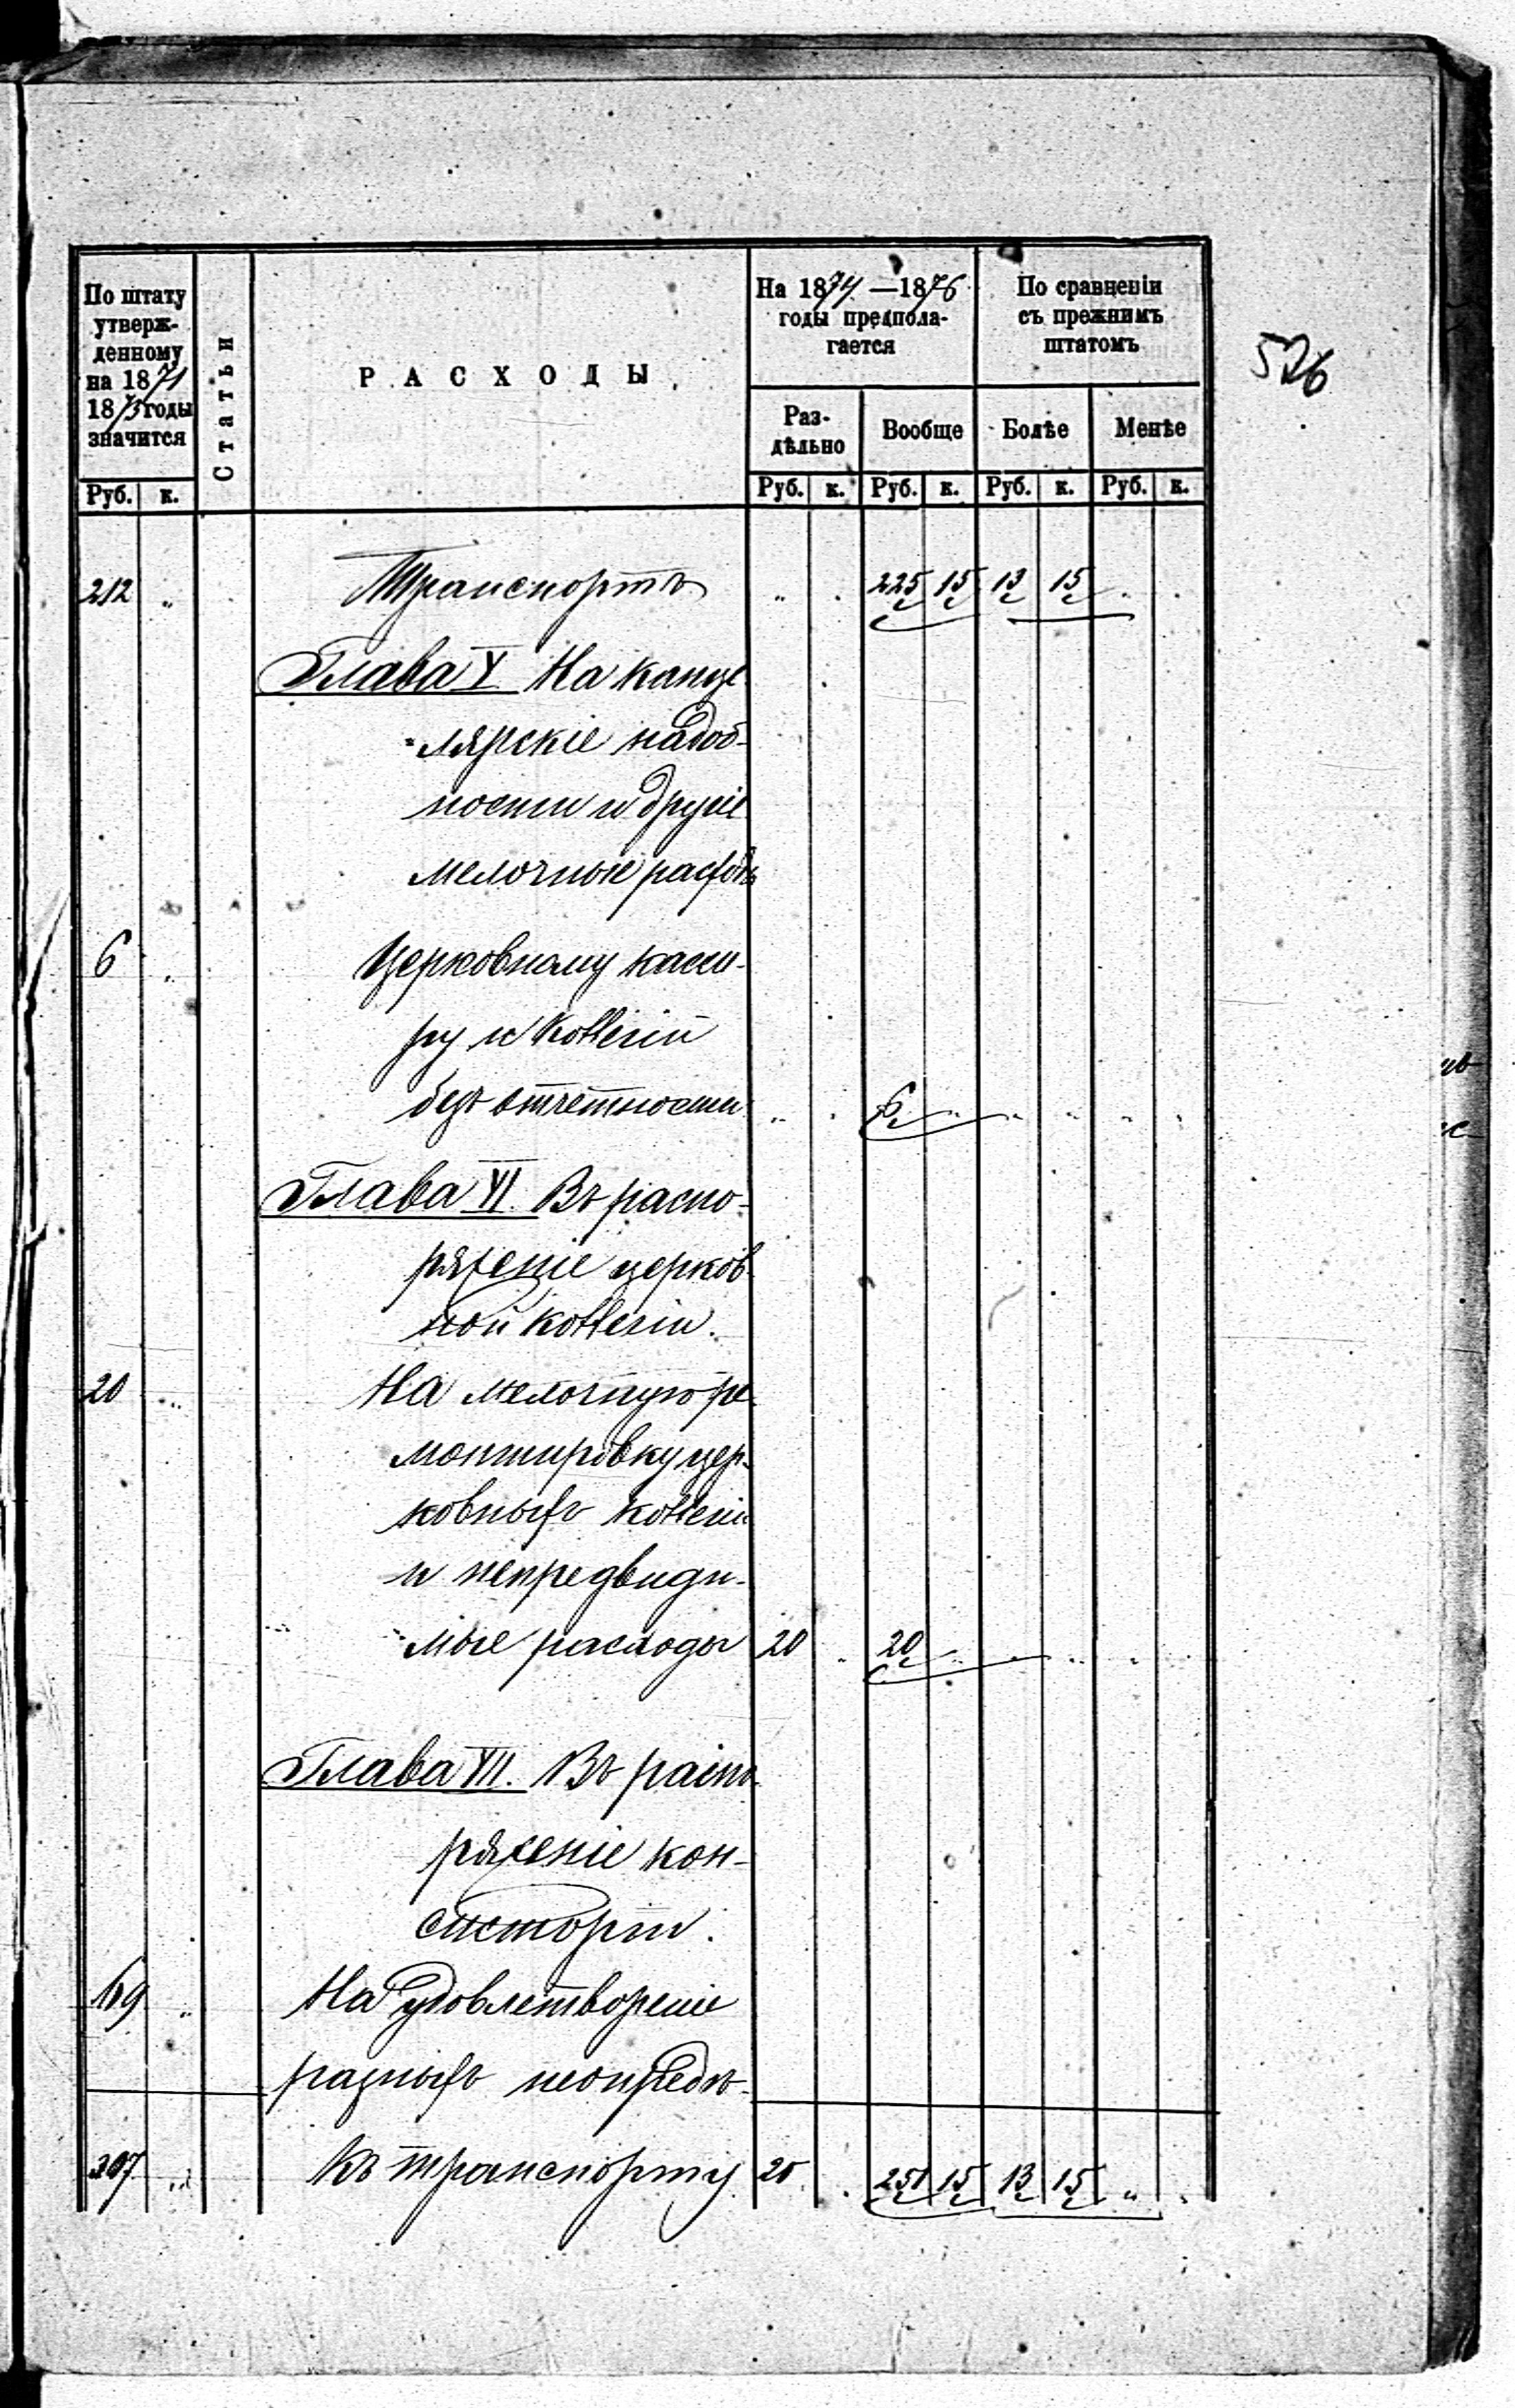 526
По штату
утверж-
денному
на 1871
1873 годы
значится
Статьи
РАСХОДЫ.
На 1874—1876
годы предпола-
гается
По сравненіи
съ прежнимъ
штатомъ
Раз-
дѣльно
Вообще
Болѣе
Менѣе
Руб. к. Руб. к. Руб. к. Руб. к. Руб. к.
212 „ Транспортъ „ „ 225 15 13 15 „ „
Глава V На канце
лярскіе надоб-
ности и другіе
мелочные расходы
6 „ Церковному касси-
ру и коллегіи
безъ отчетности „ „ 6 „ „ „ „ „
Глава VI. Въ распо-
ряженіе церков-
ной коллегіи.
20 „ На мелочную ре-
монтировку цер-
ковныхъ коллегіи
и непредвиди-
мые расходы 20 „ 20 „ „ „ „
Глава VII. Въ распо-
ряженіе кон-
систоріи.
69 „ На удовлетвореніе
разныхъ неопредѣ-
307 „ Къ транспорту 20 „ 251 15 13 15 „ „